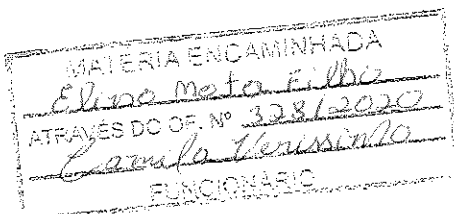 MATERIA ENCAMINHADA
Elino Mota Filho
ATRAVÉS DO OF. Nº 328/2020
Camila Verissimo
FUNCIONÁRIO